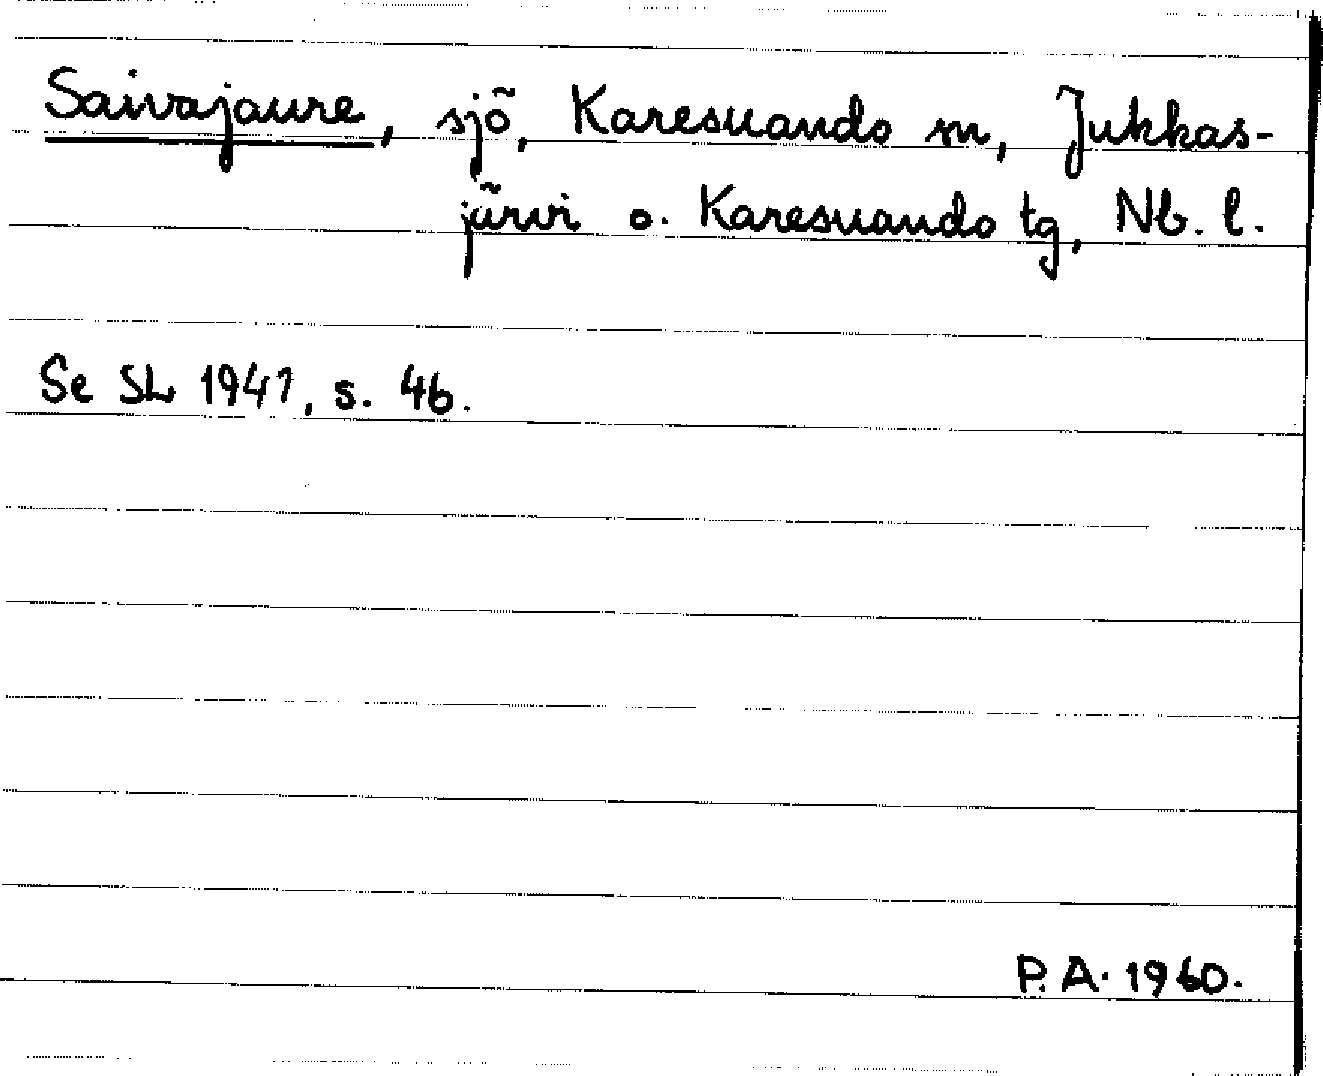 Saivajaure, sjö, Karesuando sn, Jukkas-
järvi o. Karesuando tg, Nb. l.
Se SL 1947, s. 46.
P. A. 1960.